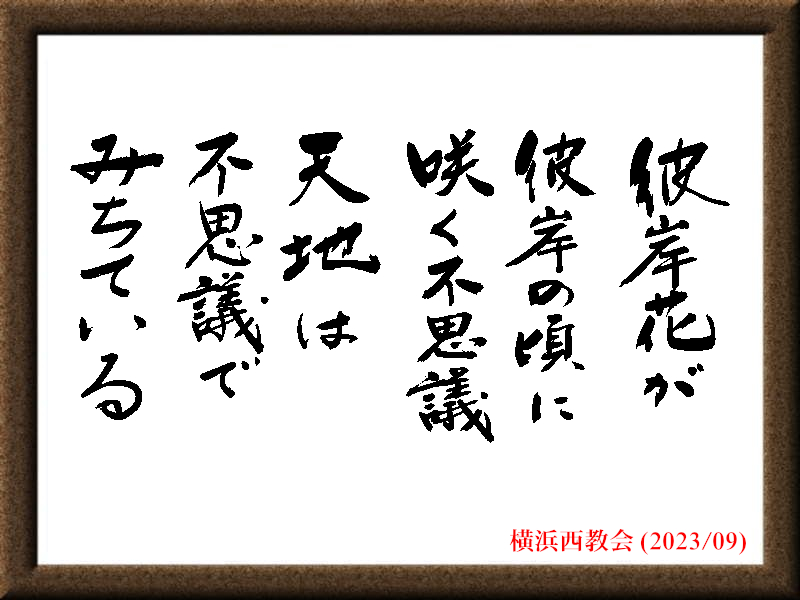 彼岸花が
彼岸の頃に
咲く不思議
天地は
不思議で
みちている
横浜西教会 (2023/09)